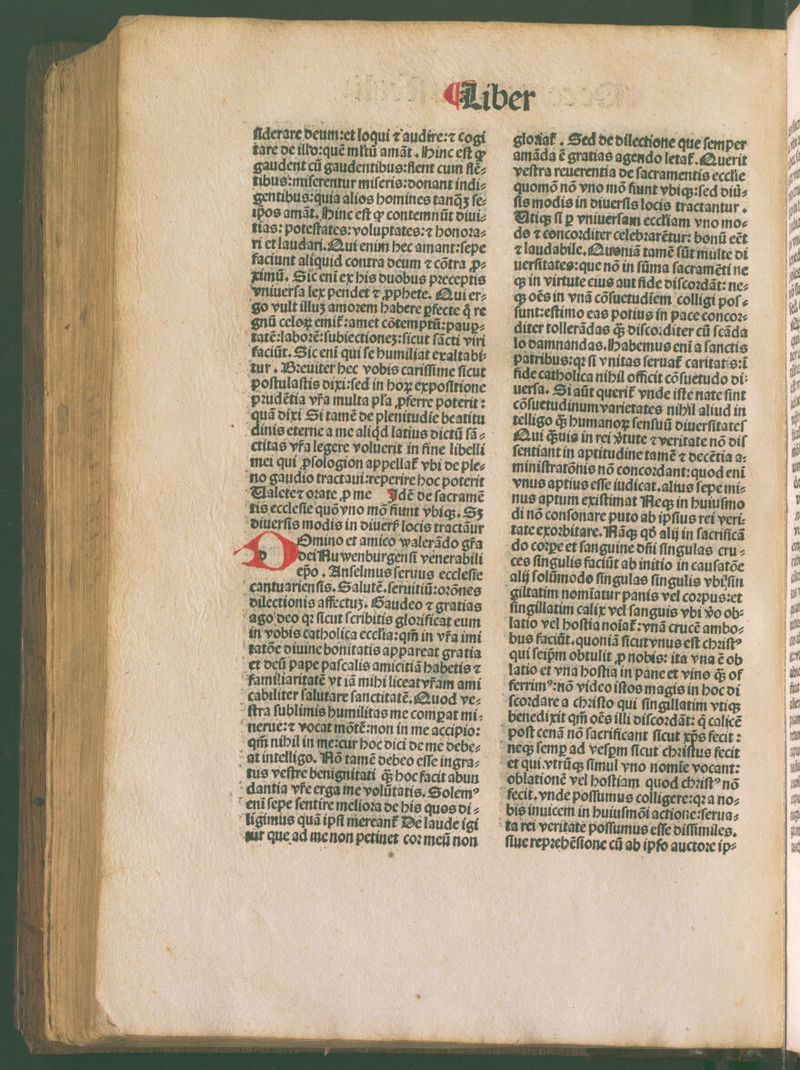 ¶Liber
ſiderare deum:et loqui ⁊ audire:⁊ cogi
tare de illo:quē ml̄tū amāt. Hinc eſt ꝙ
gaudent cū gaudentibus:flent cum flē⸗
tibus:miſerentur miſeris:donant indi⸗
gentibus:quia alios homines tanqȝ ſe⸗
ip̄os amāt. Hinc eſt ꝙ contemnūt diui⸗
tias: poteſtates:voluptates:⁊ honora⸗
ri et laudari. Qui enim hec amant:ſepe
faciunt aliquid contra deum ⁊ cōtra ꝓ⸗
ximū. Sic enī ex his duobus preceptis
vniuerſa lex pendet ⁊ ꝓphete. Qui er⸗
go vult illuȝ amorem habere ꝑfecte q̄ re
gnū celoꝝ emit᷑:amet cōtemptū:pauꝑ⸗
tatē:laborē:ſubiectioneȝ:ſicut ſācti viri
faciūt. Sic enī qui ſe humiliat exaltabi⸗
tur. Breuiter hec vobis cariſſime ſicut
poſtulaſtis dixi:ſed in hoꝝ expoſitione
prudētia vr̄a multa pl̄a ꝓferre poterit:
quā dixi Si tamē de plenitudīe beatitu
dinis eterne a me aliqd latius dictū ſā⸗
ctitas vr̄a legere voluerit in fine libelli
mei qui ꝓſologion appellat᷑ vbi de ple⸗
no gaudio tractaui:reperire hoc poterit
Ualete⁊ orate ꝓ me Idē de ſacramē
tis eccleſie quō vno mō fiunt vbiqꝫ. Sȝ
diuerſis modis in diuerſ̄ locis tractāur
Domino et amico walerādo gr̄a
dei Nuwenburgenſi venerabili
ep̄o. Anſelmus ſeruus eccleſie
cantuarienſis. Salutē.ſeruitiū:orōnes
dilectionis affectuȝ. Gaudeo ⁊ gratias
ago deo qꝛ ſicut ſcribitis glorificat eum
in vobis catholica eccl̄ia:qm̄ in vr̄a imi
tatōe diuine bonitatis appareat gratia
et deū pape paſcalis amicitiā habetis ⁊
familiaritatē vt iā mihi liceat vr̄am ami
cabiliter ſalutare ſanctitatē. Quod ve⸗
ſtra ſublimis humilitas me comꝑat mi⸗
nerue:⁊ vocat mōtē:non in me accipio:
qm̄ nihil in me:cur hoc dici de me debe⸗
at intelligo. Nō tamē debeo eſſe ingra⸗
tus veſtre benignitati qꝫ hoc facit abun
dantia vr̄e erga me volūtatis. Solemꝰ
enī ſepe ſentire meliora de his quos di⸗
ligimus quā ipſi mereant᷑ De laude igi
tur que ad me non ꝑtinet cor meū non
gloriat᷑. Sed de dilectione que ſemper
amāda ē gratias agendo letat᷑. Querit
veſtra reuerentia de ſacramentis eccl̄ie
quomō nō vno mō fiunt vbiqꝫ:ſed diū⸗
ſis modis in diuerſis locis tractantur.
Utiqꝫ ſi ꝑ vniuerſam eccl̄iam vno mo⸗
do ⁊ concorditer celebrarētur: bonū eēt
⁊ laudabile. Quoniā tamē ſūt multe di
uerſitates:que nō in ſūma ſacramēti ne
qꝫ in virtute eius aut fide diſcordāt: ne⸗
qꝫ oēs in vnā cōſuetudīem colligi poſ⸗
ſunt:eſtimo eas potius in pace concor⸗
diter tollerādas qꝫ diſcorditer cū ſcāda
lo damnandas. Habemus enī a ſanctis
patribus:qꝛ ſi vnitas ſeruat᷑ caritatis:ī
fide catholica nihil officit cōſuetudo di⸗
uerſa. Si aūt querit᷑ vnde iſte nate ſint
cōſuetudinum varietates nihil aliud in
telligo qꝫ humanoꝝ ſenſuū diuerſitates
Qui qꝫuis in rei v̄tute ⁊ veritate nō diſ
ſentiant in aptitudine tamē ⁊ decētia a⸗
miniſtratōnis nō concordant:quod enī
vnus aptius eſſe iudicat. alius ſepe mi⸗
nus aptum exiſtimat Neqꝫ in huiuſmo
di nō conſonare puto ab ipſius rei veri⸗
tate exorbitare. Nāqꝫ qd̄ alij in ſacrificā
do corpe et ſanguine dn̄i ſingulas cru⸗
ces ſingulis faciūt ab initio in cauſatōe
alij ſolūmodo ſingulas ſingulis vbi ſin
gillatim nomīatur panis vel corpus:et
ſingillatim calix vel ſanguis vbi v̄o ob⸗
latio vel hoſtia noīat᷑:vnā crucē ambo⸗
bus faciūt. quoniā ſicut vnus eſt chriſtꝰ
qui ſeip̄m obtulit ꝓ nobis: ita vna ē ob
latio et vna hoſtia in pane et vino qꝫ of
ferrimꝰ:nō video iſtos magis in hoc di
ſcordare a chriſto qui ſingillatim vtiqꝫ
benedixit qm̄ oēs illi diſcordāt: q̄ calicē
poſt cenā nō ſacrificant ſicut xp̄s fecit:
neqꝫ ſemꝑ ad veſꝑm ſicut chriſtus fecit
et qui vtrūqꝫ ſimul vno nomīe vocant:
oblationē vel hoſtiam quod chriſtꝰ nō
fecit. vnde poſſumus colligere:qꝛ a no⸗
bis inuicem in huiuſmōi actione:ſerua⸗
ta rei veritate poſſumus eſſe diſſimiles.
ſiue reprehēſione cū ab ipſo auctore ip⸗